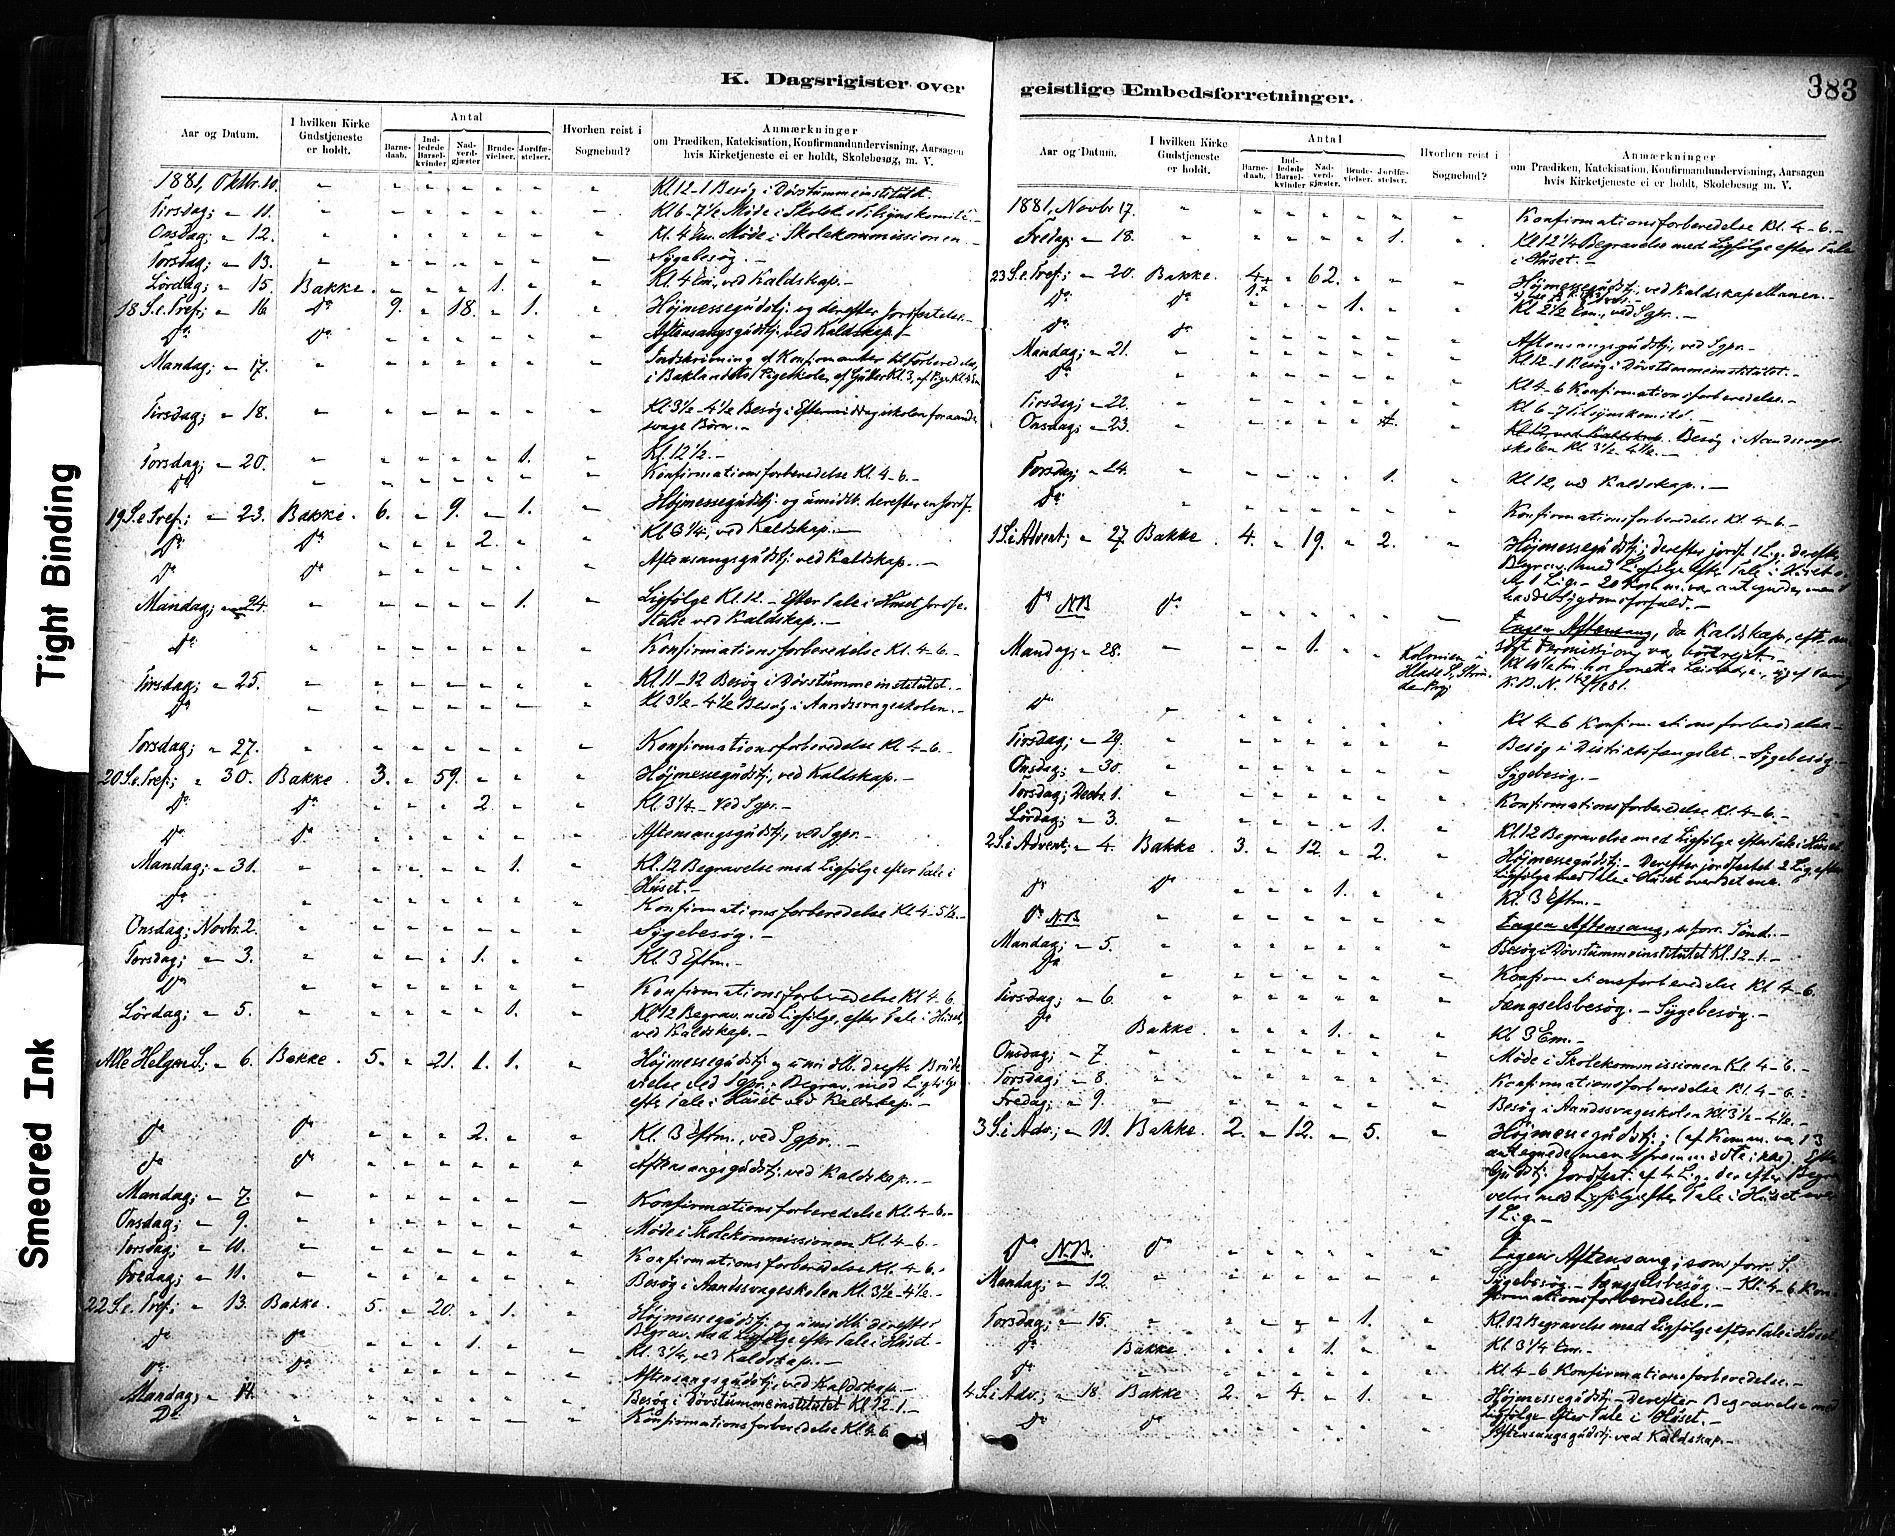 K. Dagsrigister over
Aar og Datum.
I hvilken Kirke Gudstjeneste er holdt.
Antal
Barnedaab.
Indledede Barselkvinder
Nadverdgjæster
Brudevielser.
Jordfæstelser.
Hvorhen reist i Sognebud?
Anmærkninger
om Prædiken, Katekisation, Konfirmandundervisning, Aarsagen
hvis Kirketjeneste ei er holdt, Skolebesøg, m. V.
1881, Oktbr. 10. Kl. 12-1 Besøg i Døvstummeinstitutet.
Tirsdag; " 11. Kl 6-7½ Møde i Skolek.
Onsdag; " 12. Kl. 4 Em. Møde i Skolekommissionen
Torsdag; " 13. Sygebesøg.-
Lørdag; " 15. Bakke. 1. Kl. 4 Em., ved Kaldskap.-
18 S. e. Tref.; " 16 Do 9. 18. 1. Højmessegudstj. og derefter Jordfæstelse.-
Do Do Aftensangsgudstj. ved Kaldskap.-
Mandag; " 17. Indskrivning af Konfirmanter til Forberedelse,
i Baklandets Pigeskole, af Gutter Kl. 3, af Piger Kl. 4
Tirsdag; " 18. Kl. 3½-4½ Besøg i Eftermiddagsskolen for aands-
svage Børn.-
Torsdag; " 20. 1. Kl. 12½.-
Do Konfirmationsforberedelse Kl. 4-6.-
19 S. e. Tref.; " 23. Bakke. 6. 9. 1. Højmessegudstj. og umidlb. derefter en Jordf.
Do Do 2. Kl 3¼, ved Kaldskap.-
Do Do Aftensangsgudstj. ved Kaldskap.-
Mandag; " 24. 1. Ligfølge Kl. 12.- Efter Tale i Huset Jordfæ-
stelse ved Kaldskap.-
Do Konfirmationsforberedelse Kl. 4-6.-
Tirsdag; " 25. Kl. 11-12 Besøg i Døvstummeinstitutet.-
Do Kl 3½-4½ Besøg i Aandssvageskolen.-
Torsdag; " 27. Konfirmationsforberedelse Kl. 4-6.-
20 S. e. Tref.; " 30. Bakke 3. 59. Højmessegudstj., ved Kaldskap.-
Do Do 2. Kl. 3¼.- Ved Sgpr.-
Do Do Aftensangsgudstj., ved Sgpr.-
Mandag; " 31. 1. Kl. 12 Begravelse med Ligfølge efter Tale i
Huset.-
Do Konfirmationsforberedelse Kl. 4-5½.-
Onsdag; Novbr. 2. Sygebesøg.-
Torsdag; " 3. 1. Kl. 3 Eftm.-
Do Konfirmationsforberedelse Kl 4-6.
Lørdag; " 5. 1. Kl 12 Begrav. med Ligfølge, efter Tale i Huset,
ved Kaldskap.-
Alle Helgens S.; " 6. Bakke. 5. 21. 1. 1. Højmessegudstj. og umidlb. derefter Brude-
vielse ved Sgpr.; Begrav. med Ligfølge
efter Tale i Huset ved Kaldskap.-
Do Do 2. Kl. 3 Eftm., ved Sgpr.-
Do Do Aftensangsgudstj. ved Kaldskap.-
Mandag; " 7. Konfirmationsforberedelse Kl. 4-6.-
Onsdag; " 9. Møde i Skolekommissionen Kl. 4-6.-
Torsdag; " 10. Konfirmationsforberedelse Kl. 4-6.-
Fredag; " 11. Besøg i Aandssvageskolen Kl. 3½-4½.-
22 S. e. Tref.; " 13. Bakke. 5. 20. 1. Højmessegudstj. og umidlb. derefter
Begrav. med Ligfølge efter Tale i Huset.-
Do Do 1. Kl. 3¼, ved Kaldskap.-
Do Do Aftensangsgudstj., ved Kaldskap.-
Mandag; " 14. Besøg i Døvstummeinstitutet Kl. 12-1.-
Do Konfirmationsforberedelse Kl. 4-6.
geistlige Embedsforretninger.
383
Aar og Datum.
I hvilken Kirke Gudstjeneste er holdt.
Antal
Barnedaab.
Indledede Barselkvinder
Nadverdgjæster.
Brudevielser.
Jordfæstelser.
Hvorhen reist i Sognebud?
Anmærkninger
om Prædiken, Katekisation, Konfirmandundervisning, Aarsagen
hvis Kirketjeneste ei er holdt, Skolebesøg m. V.
1881, Novbr 17. Konfirmationsforberedelse Kl. 4-6.-
Fredag; " 18. 1. Kl 12¼ Begravelse med Ligfølge efter Tale
i Huset.-
23 S. e. Tref.; " 20. Bakke. 4 62. Højmessegudstj., ved Kaldskapellanen.-
Do Do 1. Kl 2½ Em., ved Sgpr.-
Do Do Aftensangsgudstj., ved Sgpr.-
Mandag; " 21. Kl. 12-1 Besøg i Døvstummeinstitutet.-
Do Kl 4-6 Konfirmationsforberedelse.-
Tirsdag; " 22. Kl 6-7 Tilsynskomité.-
Onsdag; " 23. Kl 12, ved Kaldskap. Besøg i Aandssvage-
skolen Kl. 3½-4½.-
Torsdag; " 24. 1. Kl 12, ved Kaldskap.-
Do Konfirmationsforberedelse Kl. 4-6.-
1 S. i Advent; " 27 Bakke 4. 19. 2. Højmessegudstj; derefter jordf. 1 Lig, derefter
Begrav. med Ligfølge efter Tale i Huset
1 Lig.- 20 Kom. var antegnede, men 1
havde Sygdomsforfald.-
Do N.B. Do Ingen Aftensang, da Kaldskap., efter
Permission, var bortrejst.-
Mandag; " 28. 1. Kolonien
Do Kl 4-6 Konfirmationsforberedelse.-
Tirsdag; " 29. Besøg i Distriktsfængslet.- Sygebesøg.-
Onsdag; " 30. Sygebesøg.-
Torsdag; Decbr. 1. Konfirmationsforberedelse Kl. 4-6.-
Lørdag; " 3. 1. Kl. 12 Begravelse med Ligfølge efter Tale i Huset.
2 S. i Advent; " 4. Bakke 3. 12. 2. Højmessegudstj.- Derefter jordfæstet 2 Lig, efter
Ligfølge med Tale i Huset over det ene.
Do Do 1. Kl. 3 Eftm.-
Do N.B. Ingen Aftensang, s. forr. Sønd.-
Mandag; " 5. Besøg i Døvstummeinstitutet Kl. 12-1.-
Do Konfirmationsforberedelse Kl 4-6.
Tirsdag; " 6. Fængselsbesøg.- Sygebesøg.-
Do Bakke. 1. Kl 3 Em.-
Onsdag; " 7 Møde i Skolekommissionen Kl. 4-6.-
Torsdag; " 8. Konfirmationsforberedelse Kl. 4-6.-
Fredag; " 9. Besøg i Aandssvageskolen Kl 3½-4½.-
3 S. i Adv.; " 11. Bakke. 2. 12. 5. Højmessegudstj.; (af Komm. var 13
antegnede, men 1 fremmødte ikke). Efter
Gudstj. Jordfæst. af 4 Lig, derefter Begra-
velse med Ligfølge efter Tale i Huset over
1 Lig.-
Do N.B. Do Ingen Aftensang, som forr. S.
Mandag; " 12. Sygebesøg.- Fængselsbesøg.- Kl. 4-6 Kon-
firmationsforberedelse.-
Torsdag; " 15. 1. Kl. 12 Begravelse med Ligfølge efter Tale i Huset
Do Bakke 1. Kl 3¼ Em.-
Do Kl. 4-6 Konfirmationsforberedelse.-
4 S. i Adv.; " 18. Bakke 2. 4. 1. Højmessegudstj.- Derefter Begravelse med
Ligfølge efter Tale i Huset.-
Do Do Aftensangsgudstj. ved Kaldskap.-
Tight Binding
Smeared Ink